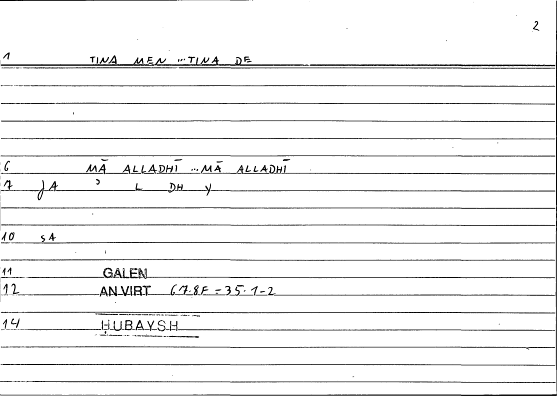 2
1 TINA MEN ...TINA DE
6 MĀ ALLADHĪ ...MĀ ALLADHĪ
7 JA ʾ L DH Y
10 SA
11 GALEN
12 AN.VIRT 67.8F = 35.1-2
14 ḤUBAYSH